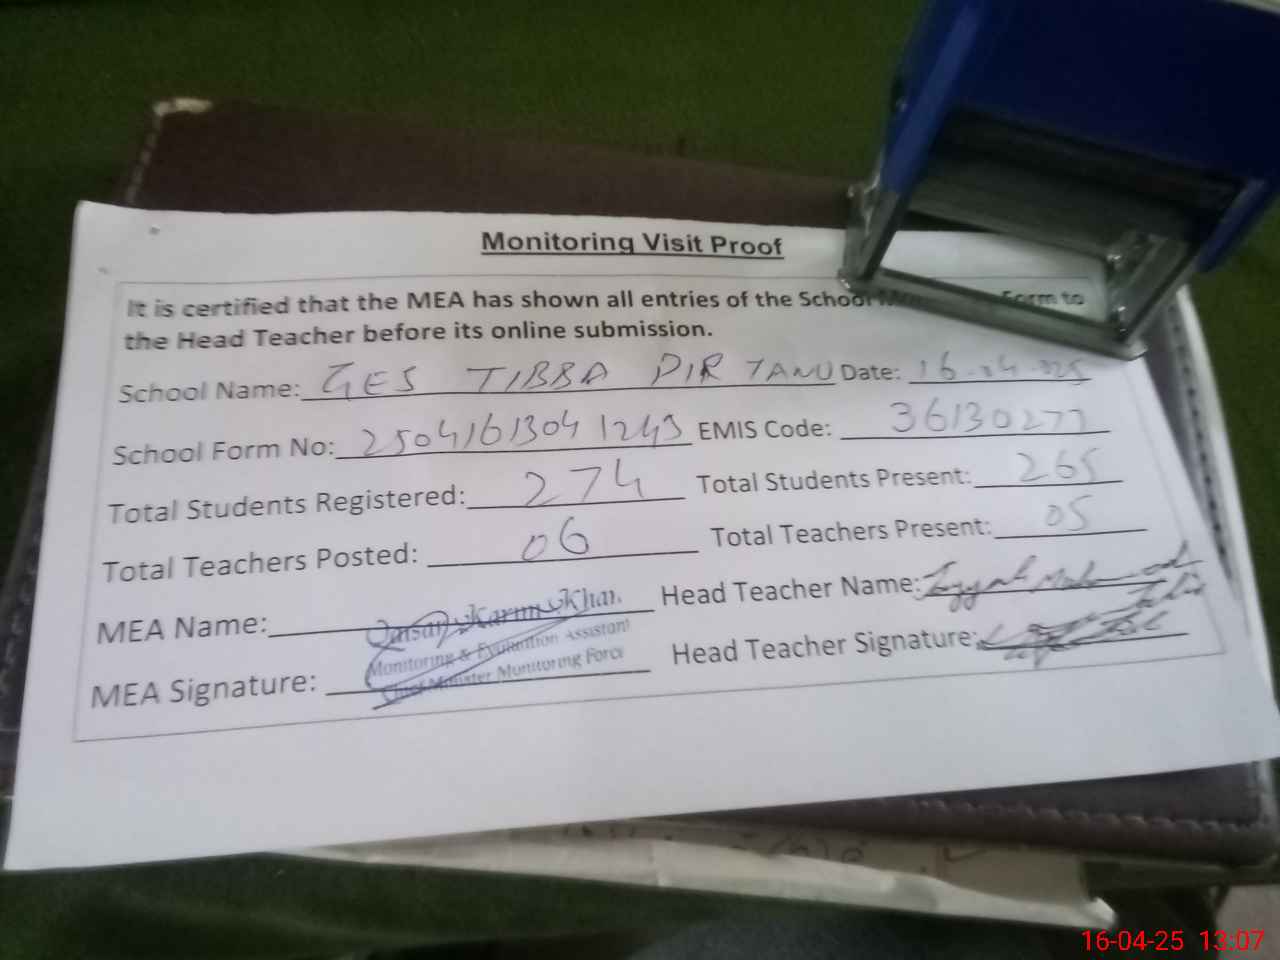 Monitoring Visit Proof
It is certified that the MEA has shown all entries of the School Form to
the Head Teacher before its online submission.
School Name: GES TIBBA PIR TANU Date: 16-04-025
School Form No: 2504161304 1243 EMIS Code: 36130277
Total Students Registered: 274 Total Students Present: 265
Total Teachers Posted: 06 Total Teachers Present: 05
MEA Name: Qaisar Karim Khan Head Teacher Name:
Monitoring & Evaluation Assistant
MEA Signature: Chief Minister Monitoring Force Head Teacher Signature:
16-04-25 13:07